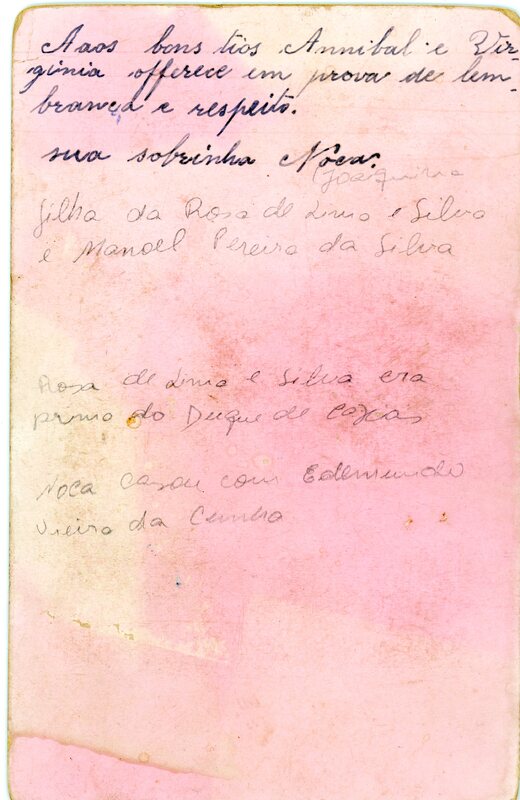 Aaos bons tios Annibal e Vir-
ginia offerece em prova de lem-
brança e respeito.
sua sobrinha Noca.
(Joaquina
filha da Rosa de Lima e Silva
e Manoel Pereira da Silva
Rosa de Lima e Silva era
prima do Duque de Caxias
Noca casou com Edemundo
Vieira da Cunha